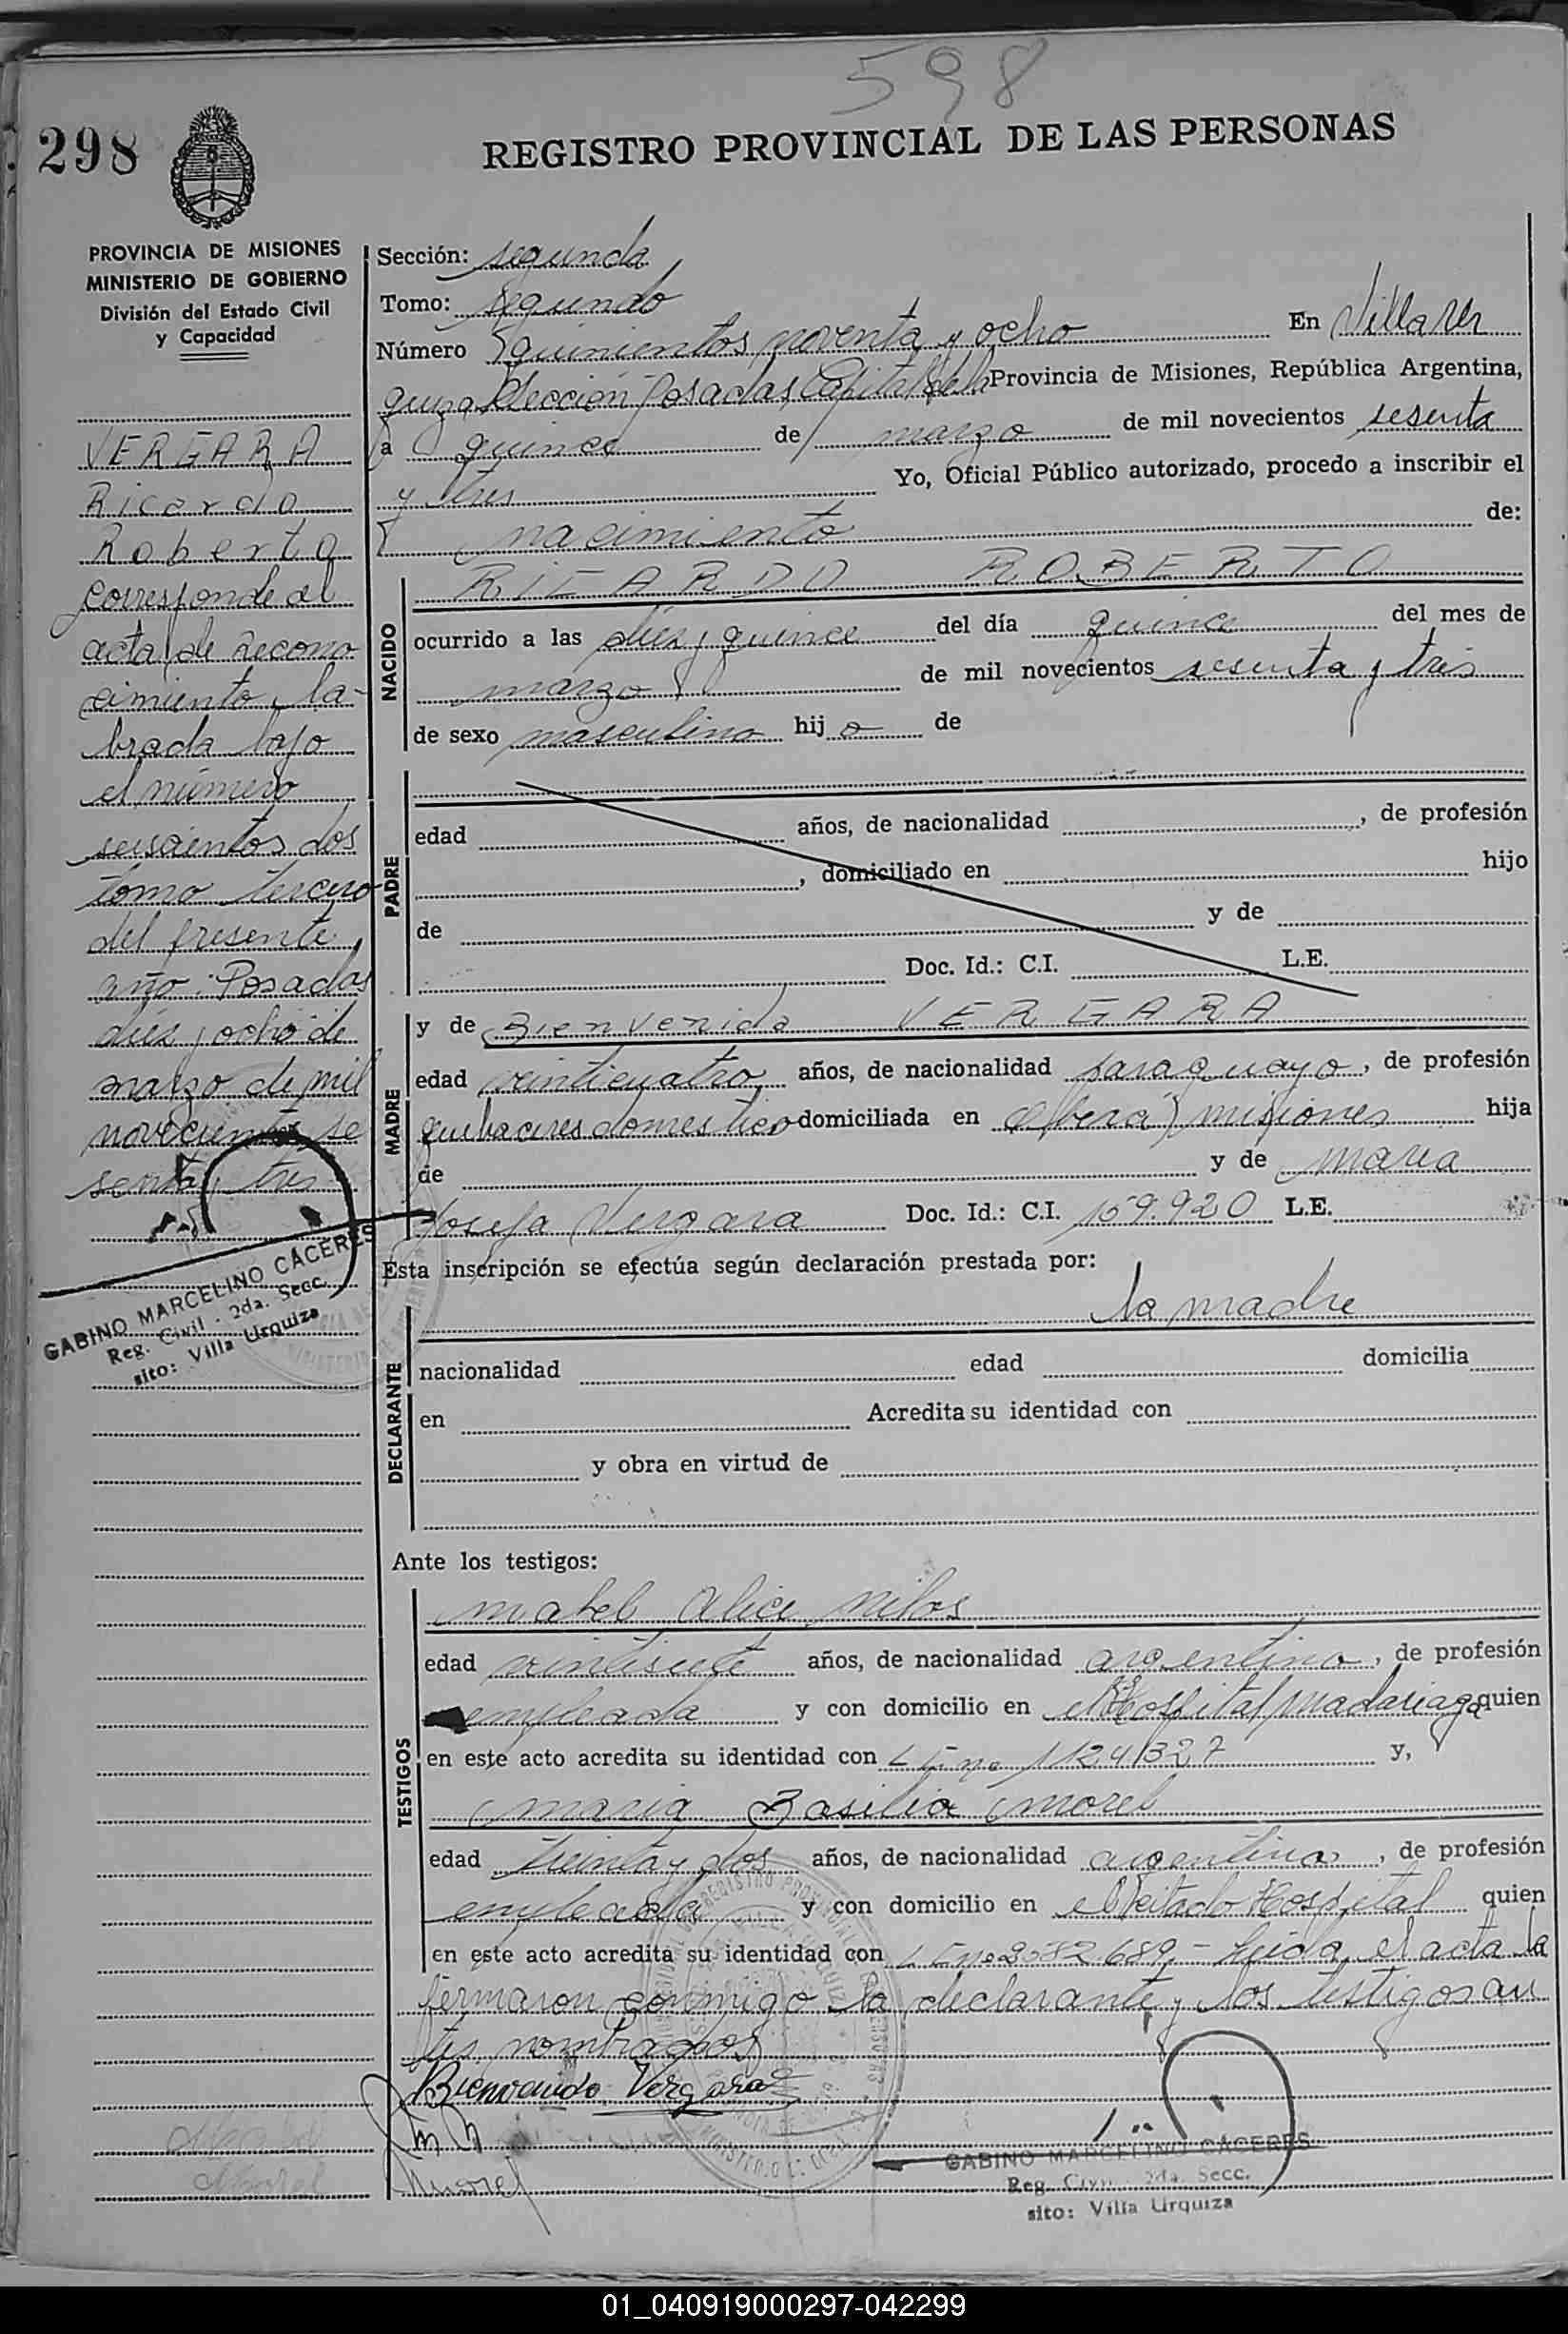 598
298
REGISTRO PROVINCIAL DE LAS PERSONAS
PROVINCIA DE MISIONES
MINISTERIO DE GOBIERNO
División del Estado Civil
y Capacidad
VERGARA
Ricardo
Roberto
corresponde al
acta de recono
cimiento la-
brada bajo
el número
seiscientos dos
tomo tercero
del presente
año. Posadas
diez y ocho de
marzo de mil
novecientos se
senta y tres
GABINO MARCELINO CÁCERES
Reg. Civil - 2da. Secc.
sito: Villa Urquiza
Sección: segunda
Tomo: segundo
Número quinientos noventa y ocho En Villa Ur
quiza Sección Posadas, Capital de la Provincia de Misiones, República Argentina,
a quince de marzo de mil novecientos sesenta
y tres Yo, Oficial Público autorizado, procedo a inscribir el
nacimiento de:
NACIDO
RICARDO ROBERTO
ocurrido a las diez y quince del día quince del mes de
marzo de mil novecientos sesenta y tres
de sexo masculino hij o de
PADRE
edad años, de nacionalidad , de profesión
, domiciliado en hijo
de y de
Doc. Id.: C.I. L.E.
MADRE
y de Bienvenida VERGARA
edad veinticuatro años, de nacionalidad paraguayo, de profesión
quehaceres domestico domiciliada en Obera, misiones hija
de y de maria
Josefa Vergara Doc. Id.: C.I. 159.920 L.E.
Esta inscripción se efectúa según declaración prestada por:
DECLARANTE
la madre
nacionalidad edad domicilia
en Acredita su identidad con
y obra en virtud de
Ante los testigos:
TESTIGOS
mabel Alice
edad veintisiete años, de nacionalidad argentina, de profesión
empleada y con domicilio en el Hospital madariaga quien
en este acto acredita su identidad con 1124327 y,
maria Basilia morel
edad treinta y dos años, de nacionalidad argentina, de profesión
empleada y con domicilio en el citado Hospital quien
en este acto acredita su identidad con leida el acta la
firmaron conmigo la declarante y los testigos an
tes nombrados
Bienvenida Vergara
Morel
GABINO MARCELINO CÁCERES
Reg. Civil - 2da. Secc.
sito: Villa Urquiza
01_040919000297-042299